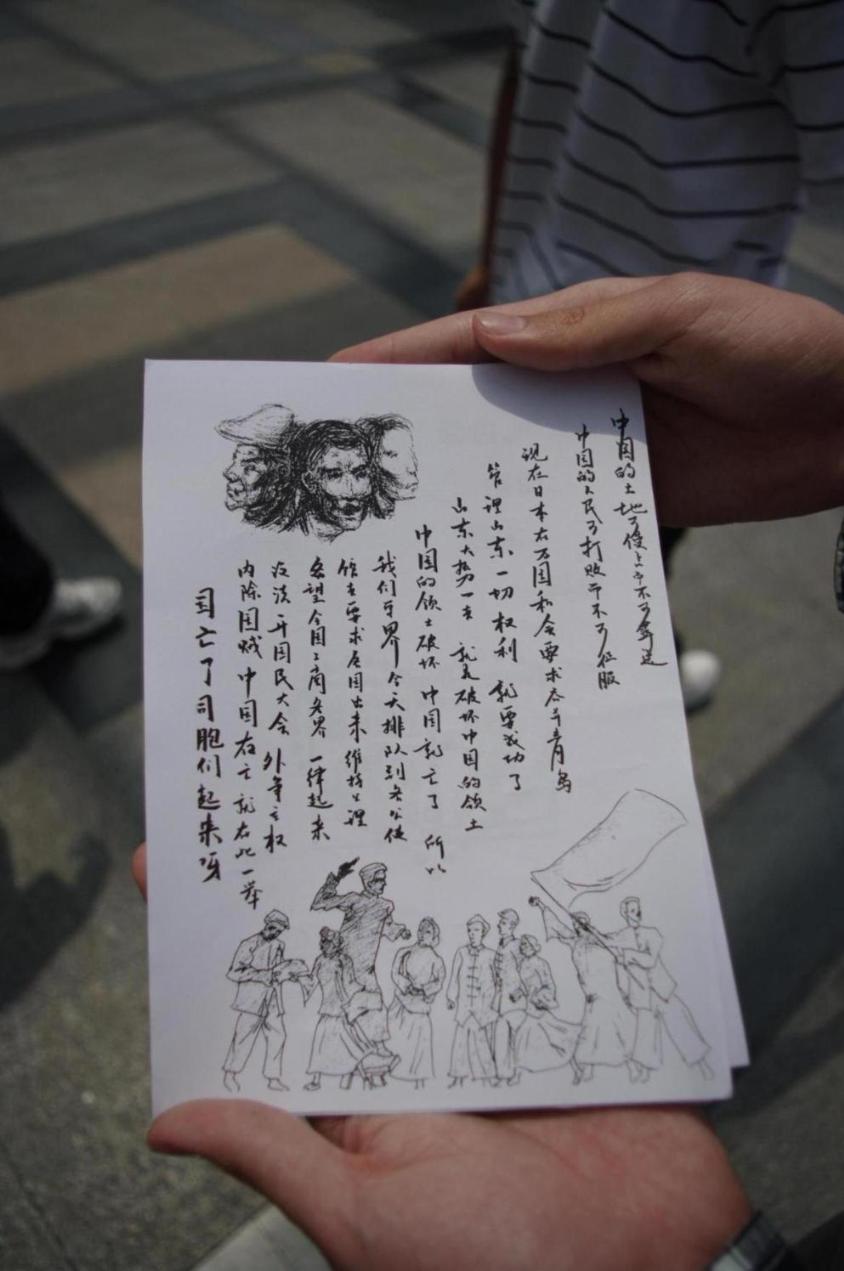 中国的土地可侵占而不可奔送
中国的人民可打败而不可征服
现在日本在万国和会要求吞并青岛
管理山东一切权利 就要成功了
山东大势一去 就是破坏中国的领土
中国的领土破坏 中国就亡了 所以
我们学界今天排队到各公使
馆去要求各国出来维持公理
务望全国工商各界 一律起来
设法开国民大会 外争主权
内除国贼 中国存亡 就在此一举
国亡了司胞们起来呀